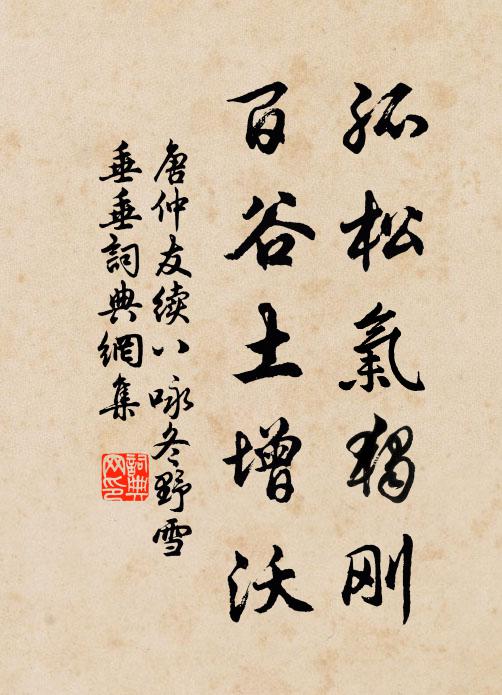 孤松氣獨刚
百谷土增沃
唐仲友續八咏冬野雪
垂垂詞典網集
詞典
网印